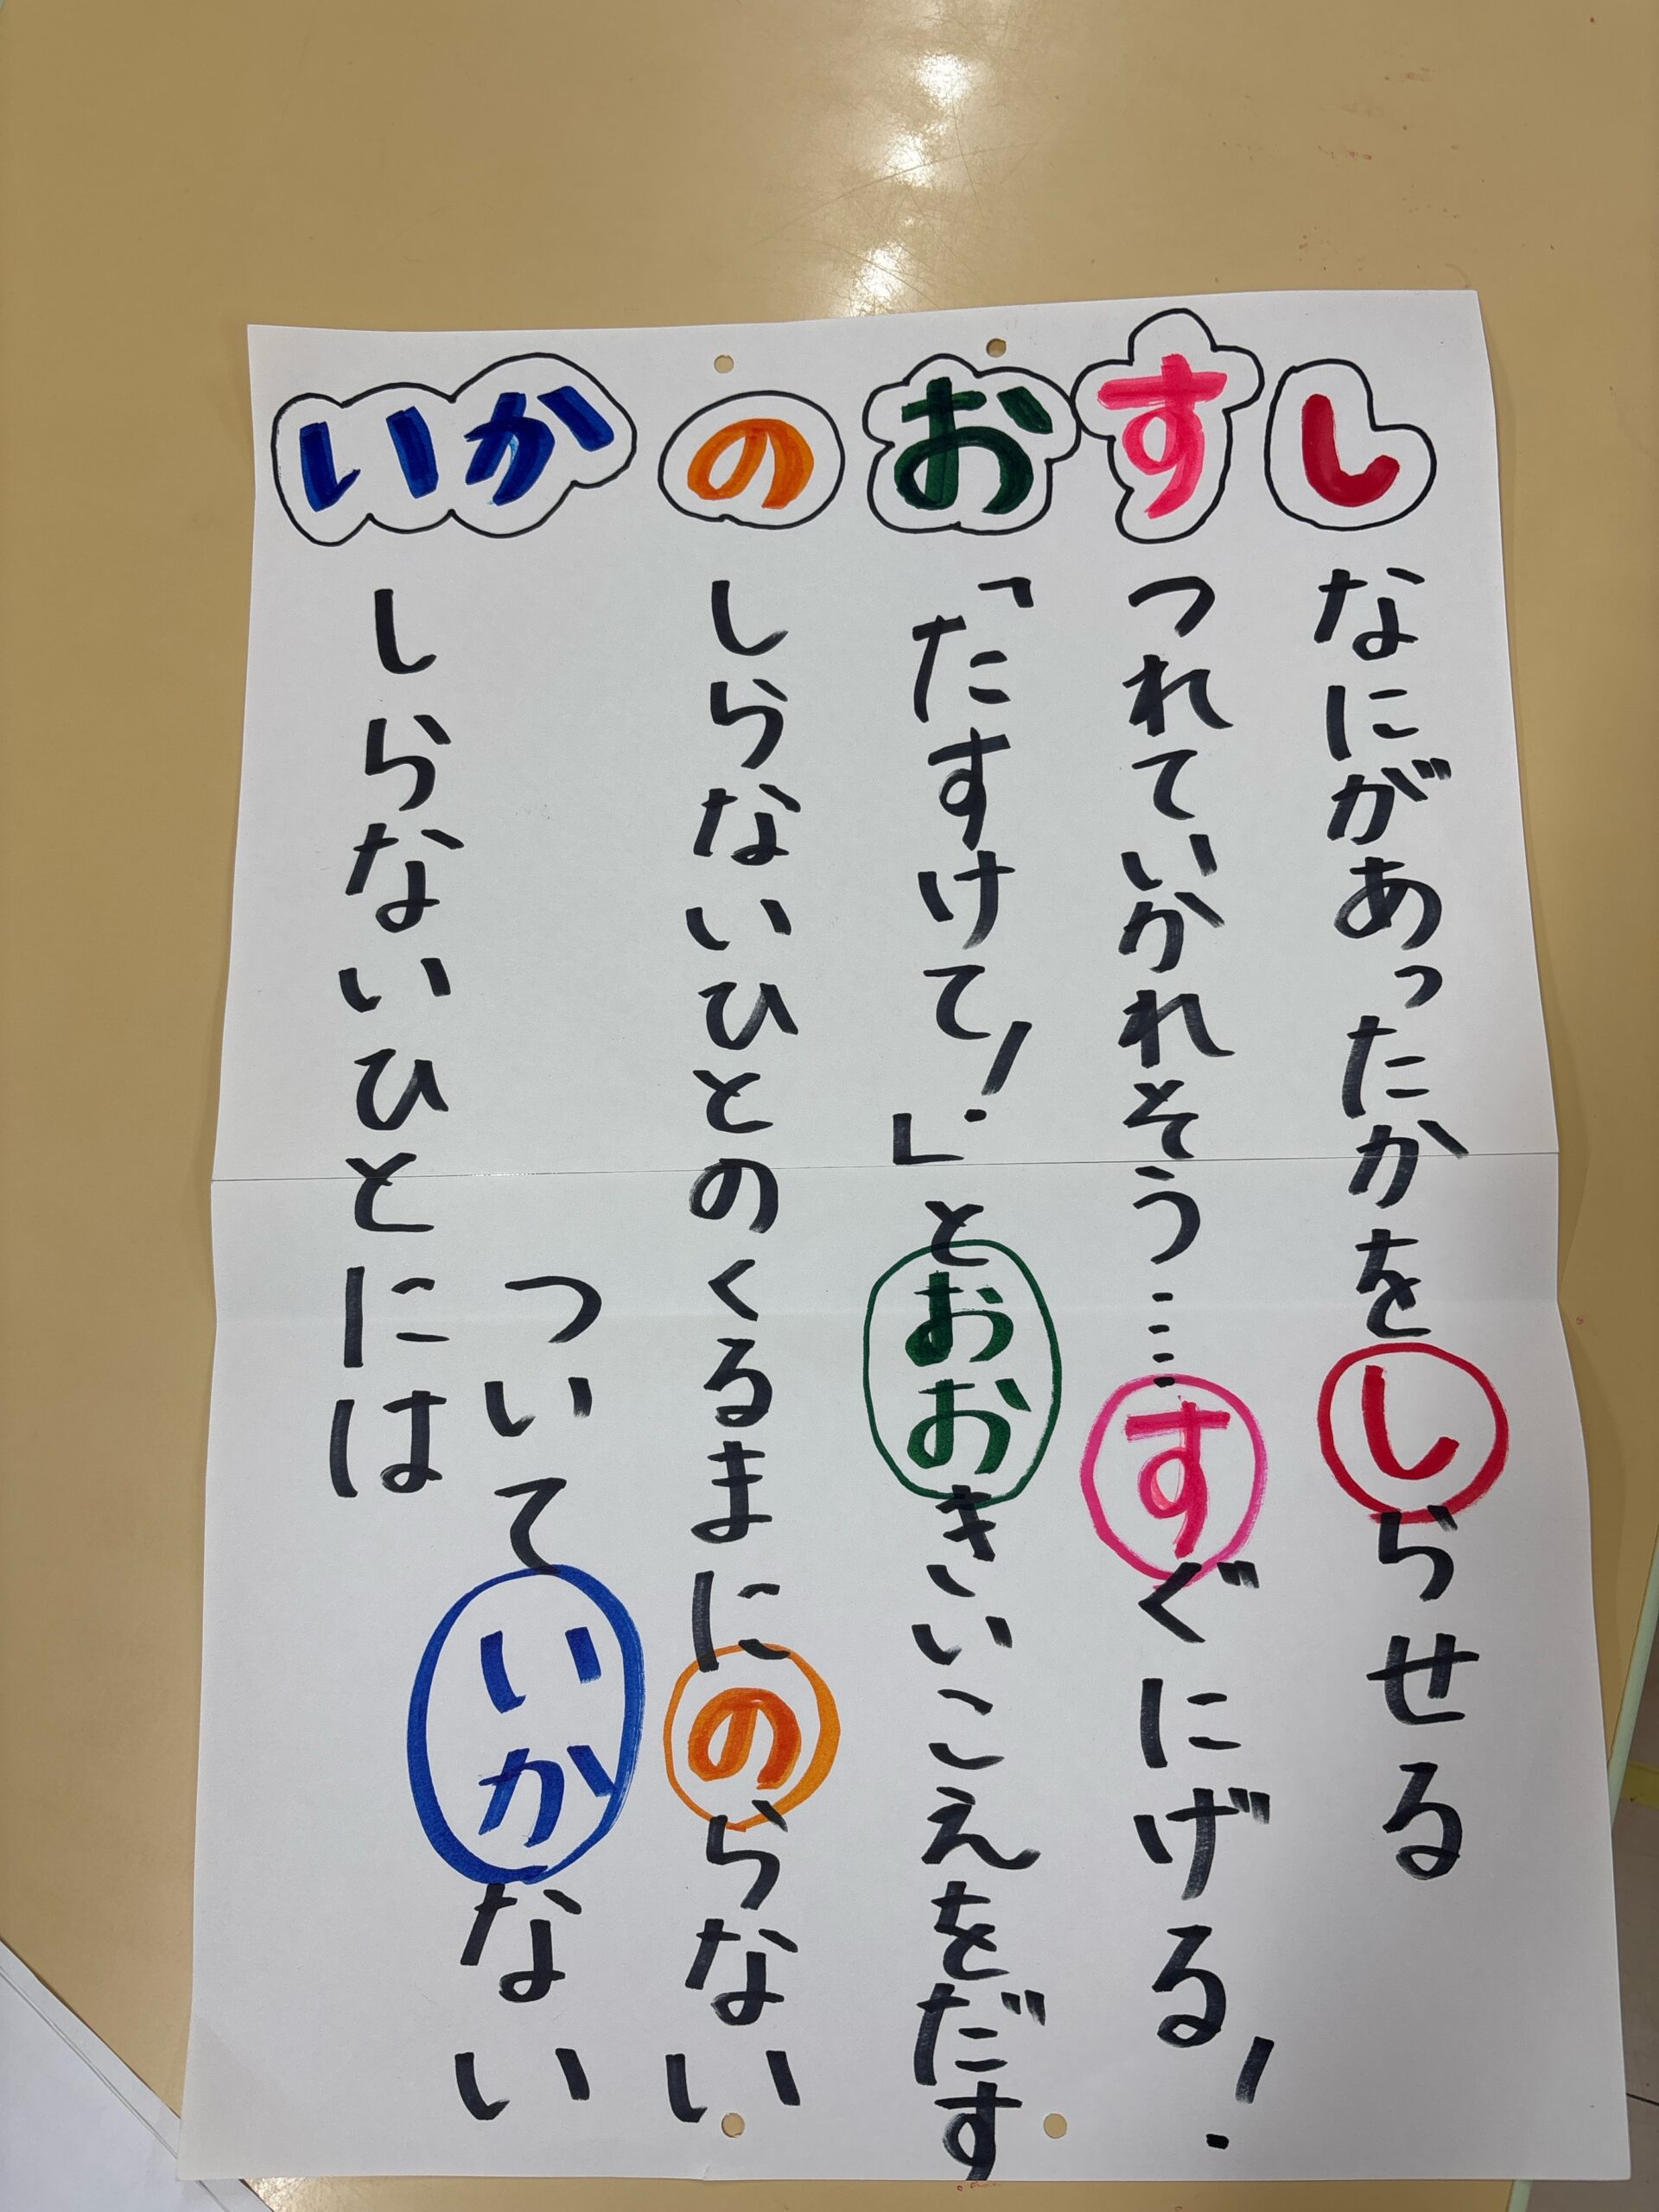 いかのおすし
なにがあったかをしらせる
つれていかれそう……すぐにげる!
「たすけて!」とおおきいこえをだす
しらないひとのくるまにのらない
しらないひとには
ついていかない